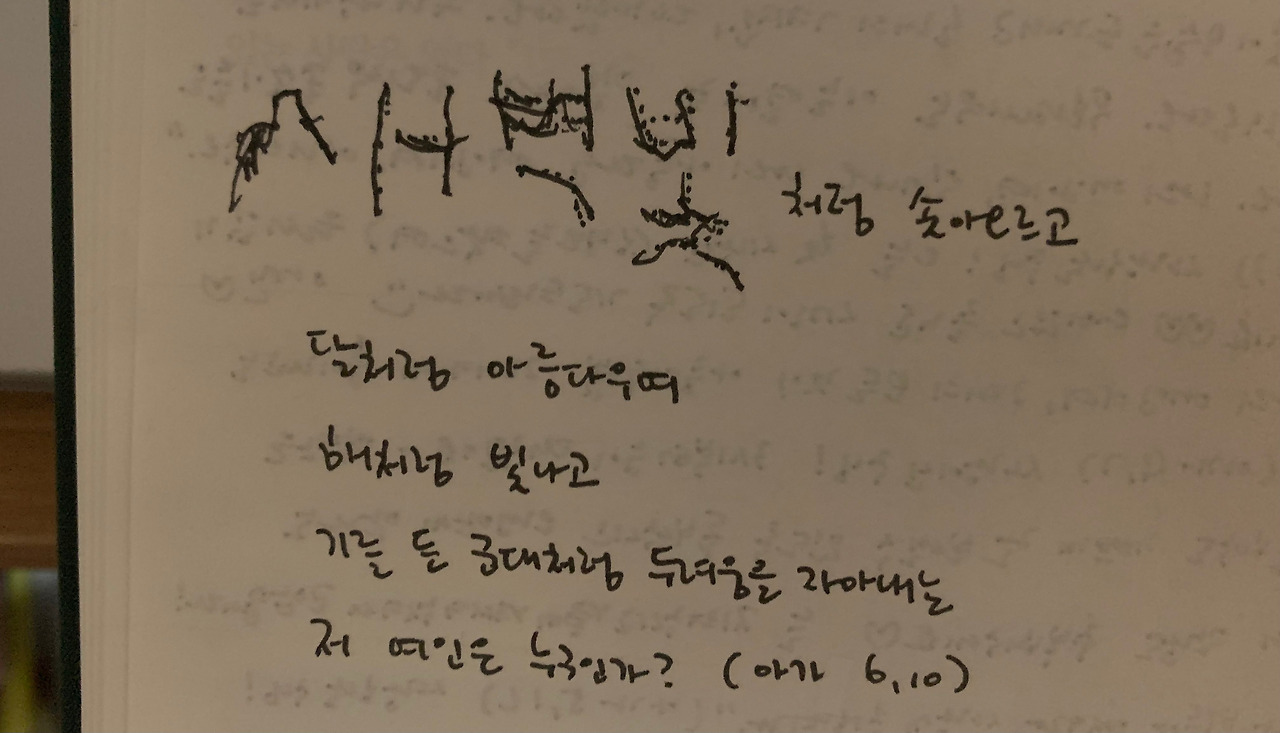 새벽빛처럼 솟아오르고
달처럼 아름다우며
해처럼 빛나고
기를 든 군대처럼 두려움을 자아내는
저 여인은 누구인가? (아가 6,10)